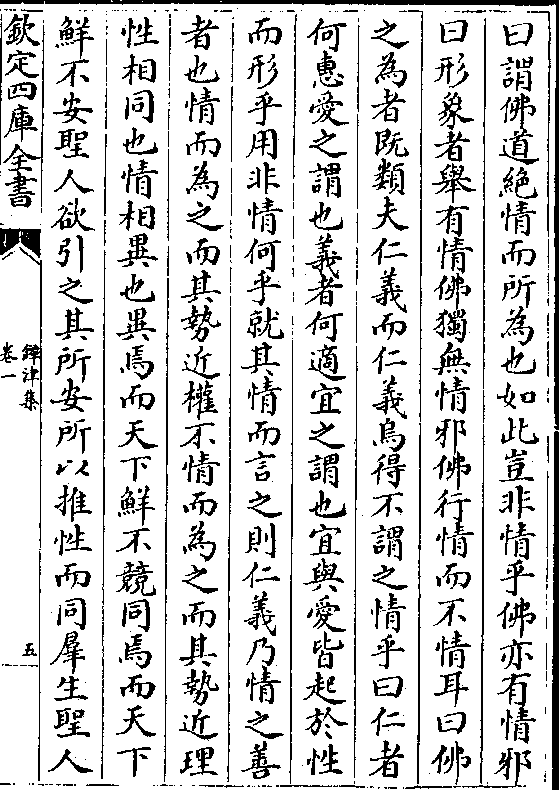 曰謂佛道絶情而所為也如此豈非情乎佛亦有情邪
曰形象者舉有情佛獨無情邪佛行情而不情耳曰佛
之為者既類夫仁義而仁義烏得不謂之情乎曰仁者
何惠愛之謂也義者何適宜之謂也宜與愛皆起於性
而形乎用非情何乎就其情而言之則仁義乃情之善
者也情而為之而其勢近權不情而為之而其勢近理
性相同也情相異也異焉而天下鮮不競同焉而天下
鮮不安聖人欲引之其所安所以推性而同羣生聖人
欽定四庫全書
鐔津集
卷一
五